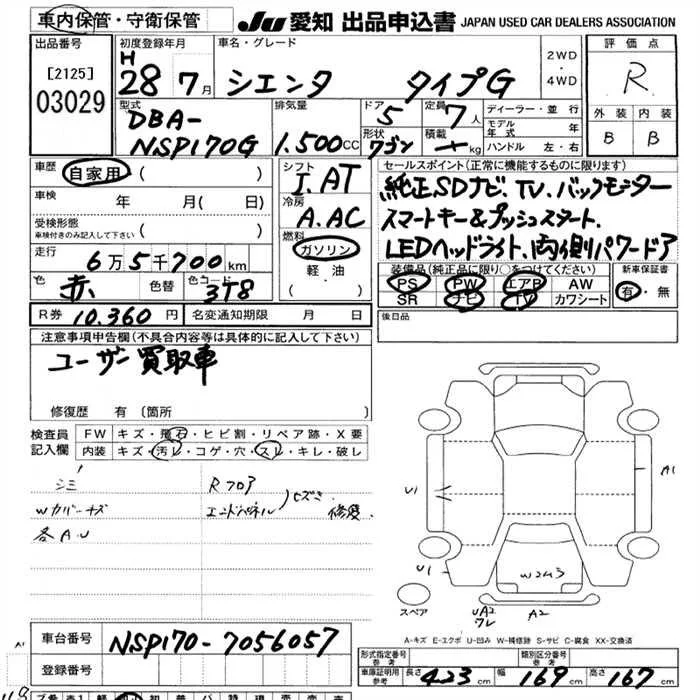 車内保管・守衛保管
JU 愛知 出品申込書 JAPAN USED CAR DEALERS ASSOCIATION
出品番号 初度登録年月 車名・グレード 2WD 評価点
[2125] H 28 7月 シエンタ タイプG 4WD R
03029 型式 排気量 ドア 定員 ディーラー・並行 外装 内装
DBA- 5 7人 モデル年式
NSP170G 1.500cc 形状 ワゴン 積載 kg ハンドル 左・右 B B
車歴 自家用 ( ) シフト I.AT セールスポイント(正常に機能するものに限ります)
車検 年 月( 日) 冷房 A.AC 純正SDナビ.TV.バックモニター
受検形態 ( ) 燃料 スマートキー&プッシュスタート.
車検付きのみ記入して下さい ガソリン LEDヘッドライト.両側パワードア
走行 6万5千700km 軽油 装備品(純正品に限り○をつけてください) 新車保証書
色 赤 色替 色コード 3T8 ( ) PS PW エアB AW 有・無
SR ナビ TV カワシート
R券 10.360円 名変通知期限 月 日 後日品
注意事項申告欄(不具合内容等は具体的に記入して下さい)
ユーザー買取車
修復歴 有 (箇所 )
検査員 FW キズ・飛石・ヒビ割・リペア跡・X要
記入欄 内装 キズ・汚レ・コゲ・穴・スレ・キレ・破レ
シミ Rフロア
Wカバーキズ エンドパネル ヒズミ 修復
各A.U
U1 A1
U1 W2U3
スペア UA2 ワレ A2
A-キズ E-エクボ U-凹み W-補修跡 S-サビ C-腐食 XX-交換済
車台番号 NSP170-7056057
登録番号
型式指定番号 参考 類別区分番号 参考
車庫証明用 参考 長さ 423cm 幅 169cm 高さ 167cm